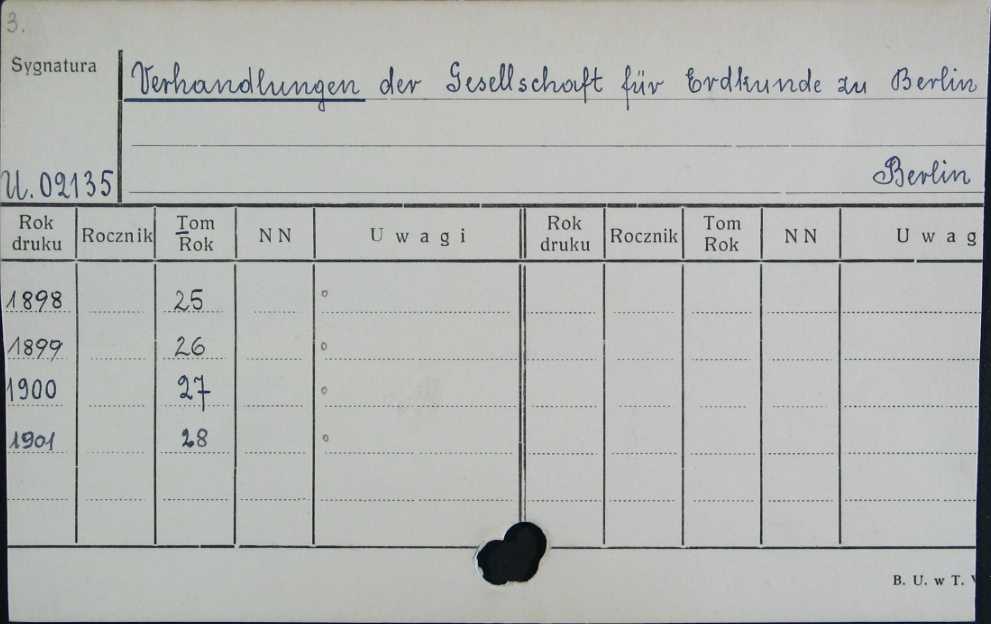 3.
Sygnatura
Verhandlungen der Gesellschaft für Erdkunde zu Berlin
Berlin
U. 02135
Rok druku Rocznik Tom Rok NN Uwagi Rok druku Rocznik Tom Rok NN Uwag
1898 25
1899 26
1900 27
1901 28
B. U. w T.